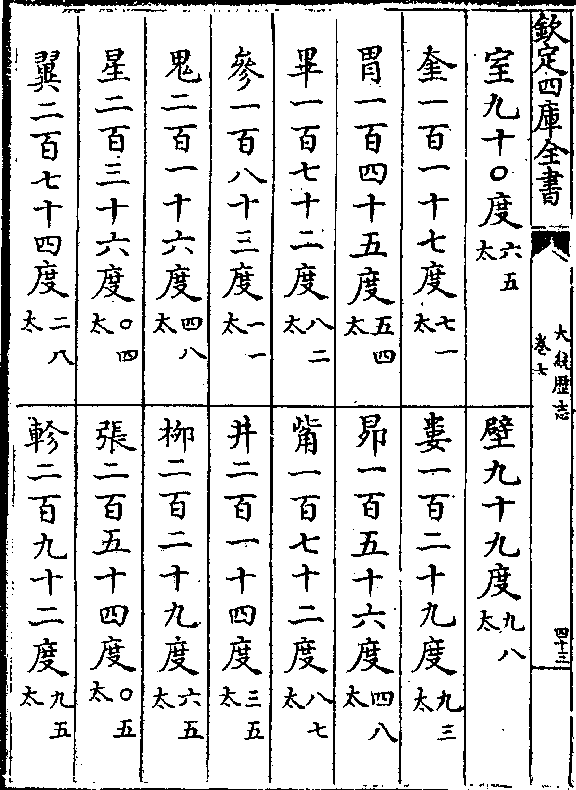 欽定四庫全書
大統歷志
卷七
四十三
室九十〇度六五太
壁九十九度九八太
奎一百一十七度七一太
婁一百二十九度九三太
胃一百四十五度五四太
昴一百五十六度四八太
畢一百七十二度八二太
觜一百七十二度八七太
參一百八十三度一一太
井二百一十四度三五太
鬼二百一十六度四八太
柳二百二十九度六五太
星二百三十六度〇四太
張二百五十四度〇五太
翼二百七十四度二八太
軫二百九十二度九五太